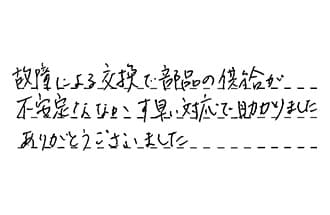 故障による交換で部品の供給が
不安定ななか、す早い対応で助かりました
ありがとうございました